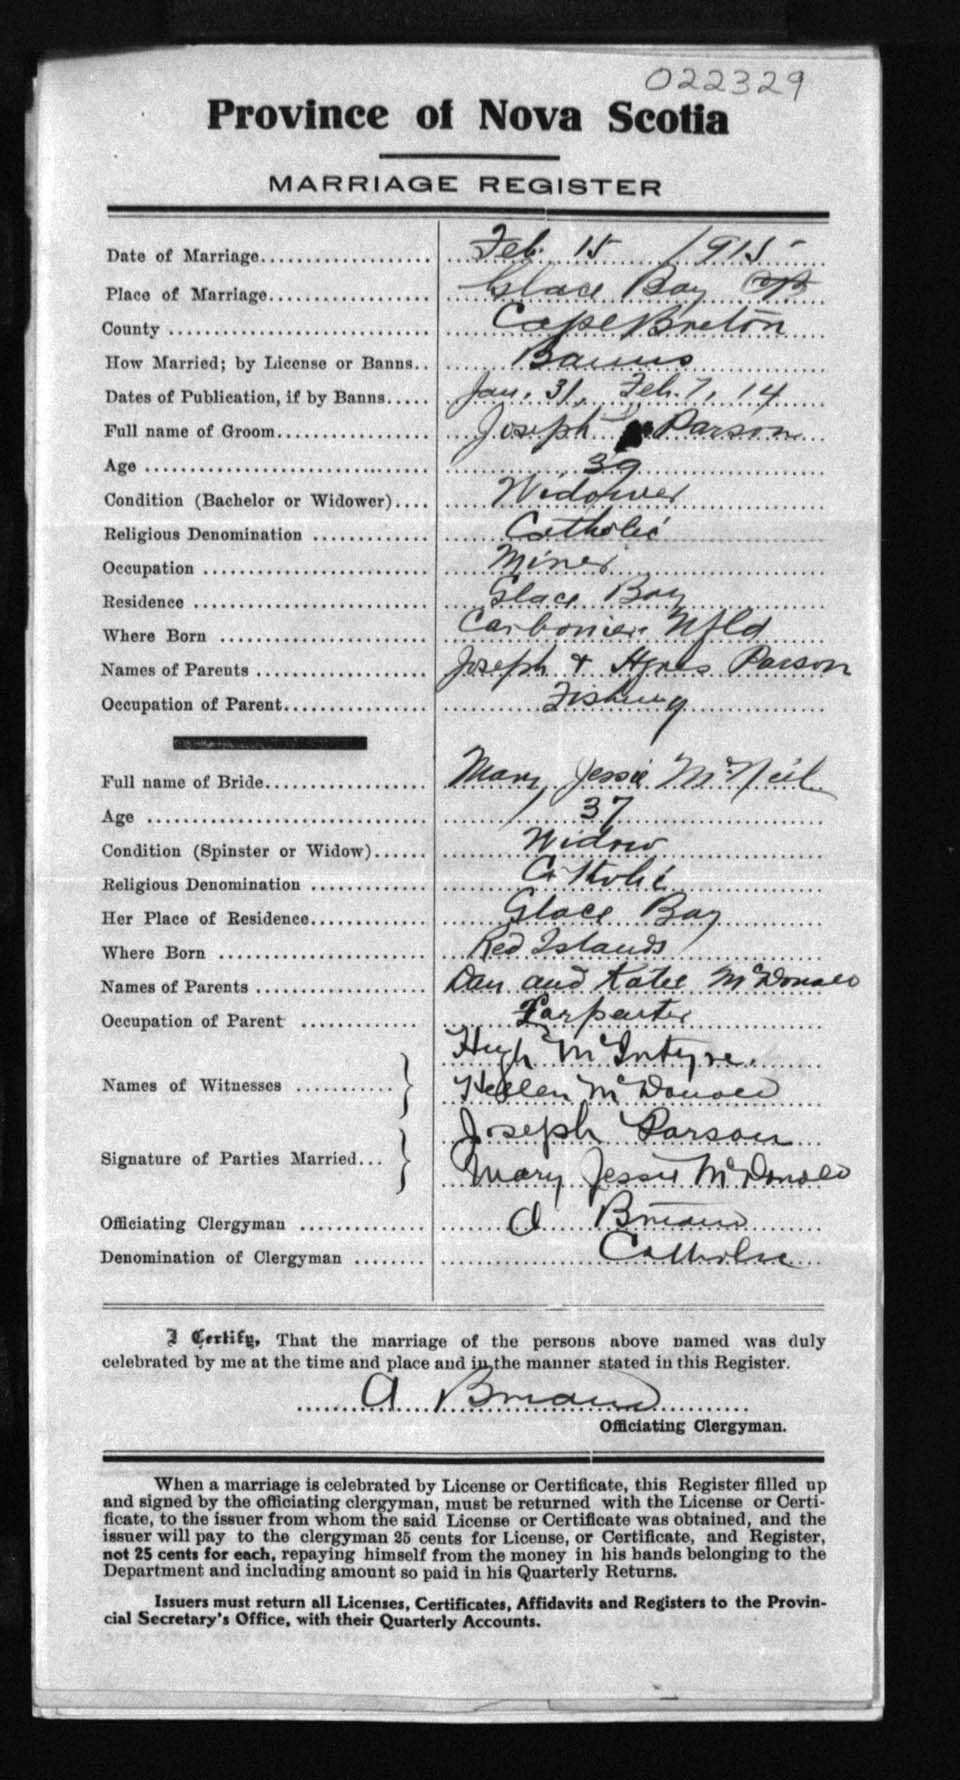 022329
Province of Nova Scotia
MARRIAGE REGISTER
Date of Marriage.................. Feb. 15 1915
Place of Marriage................. Glace Bay CB
County ........................... Cape Breton
How Married; by License or Banns.. Banns
Dates of Publication, if by Banns..... Jan. 31, Feb. 7, 14
Full name of Groom................ Joseph Parson
Age .............................. 39
Condition (Bachelor or Widower).... Widower
Religious Denomination ............ Catholic
Occupation ....................... Miner
Residence ........................ Glace Bay
Where Born ...................... Carbonier Nfld
Names of Parents ................. Joseph & Agnes Parson
Occupation of Parent............... Fishing
Full name of Bride................. Mary Jessie McNeil
Age .............................. 37
Condition (Spinster or Widow)...... Widow
Religious Denomination ............ Catholic
Her Place of Residence............. Glace Bay
Where Born ...................... Red Islands
Names of Parents ................. Dan and Katie McDonald
Occupation of Parent ............. Carpenter
Hugh McIntyre.
Names of Witnesses ........... } Hellen McDonald
Joseph Parson
Signature of Parties Married... } Mary Jessie McDonald
Officiating Clergyman ............. A
Denomination of Clergyman ........ Catholic
I Certify, That the marriage of the persons above named was duly
celebrated by me at the time and place and in the manner stated in this Register.
A
Officiating Clergyman.
When a marriage is celebrated by License or Certificate, this Register filled up
and signed by the officiating clergyman, must be returned with the License or Certi-
ficate, to the issuer from whom the said License or Certificate was obtained, and the
issuer will pay to the clergyman 25 cents for License, or Certificate, and Register,
not 25 cents for each, repaying himself from the money in his hands belonging to the
Department and including amount so paid in his Quarterly Returns.
Issuers must return all Licenses, Certificates, Affidavits and Registers to the Provin-
cial Secretary's Office, with their Quarterly Accounts.